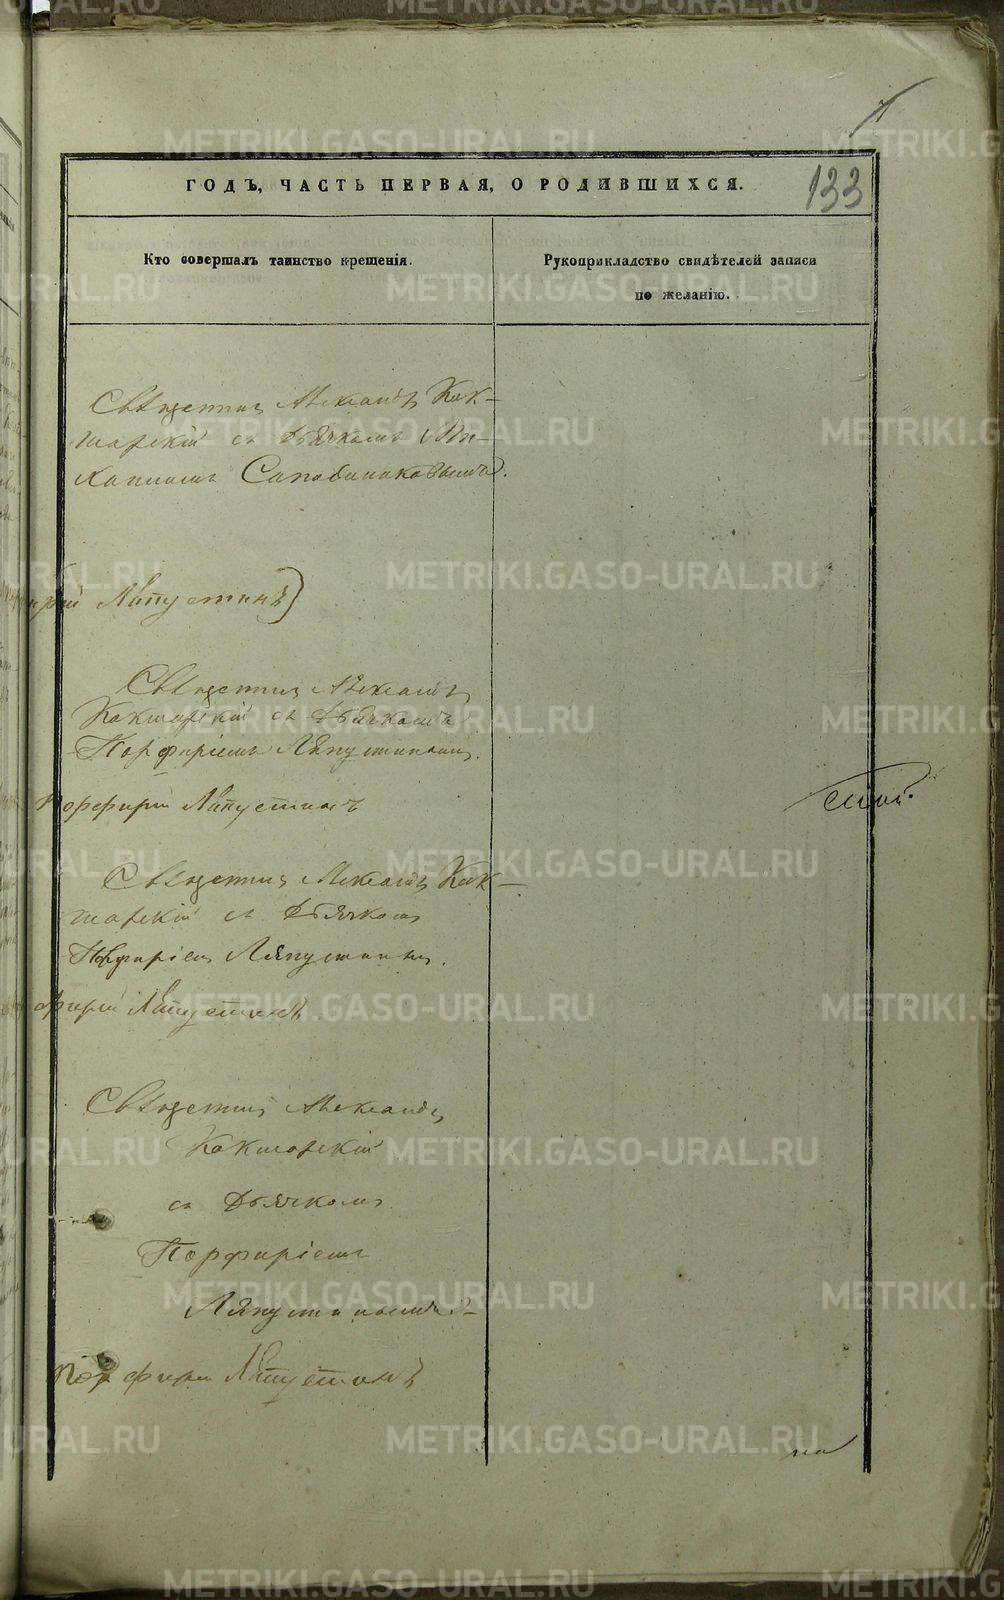 133
ГОДЪ, ЧАСТЬ ПЕРВАЯ, О РОДИВШИХСЯ.
Кто совершалъ таинство крещенія.
Рукоприкладство свидѣтелей записи
по желанію.
Священникъ Александръ Кок-
шарскій съ Дьячкомъ Ми-
хаиломъ
Ляпустинъ)
Священникъ Александръ
Кокшарскій съ Дьячкомъ
Порфиріемъ Ляпустинымъ.
Порфирій Ляпустинъ
Священникъ Александръ Кок-
шарскій съ Дьячкомъ
Порфиріемъ Ляпустинымъ.
фирій Ляпустинъ.
Священникъ Александръ
Кокшарскій
съ Дьячкомъ
Порфиріемъ
Ляпустинымъ
Порфирій Ляпустинъ
METRIKI.GASO-URAL.RU